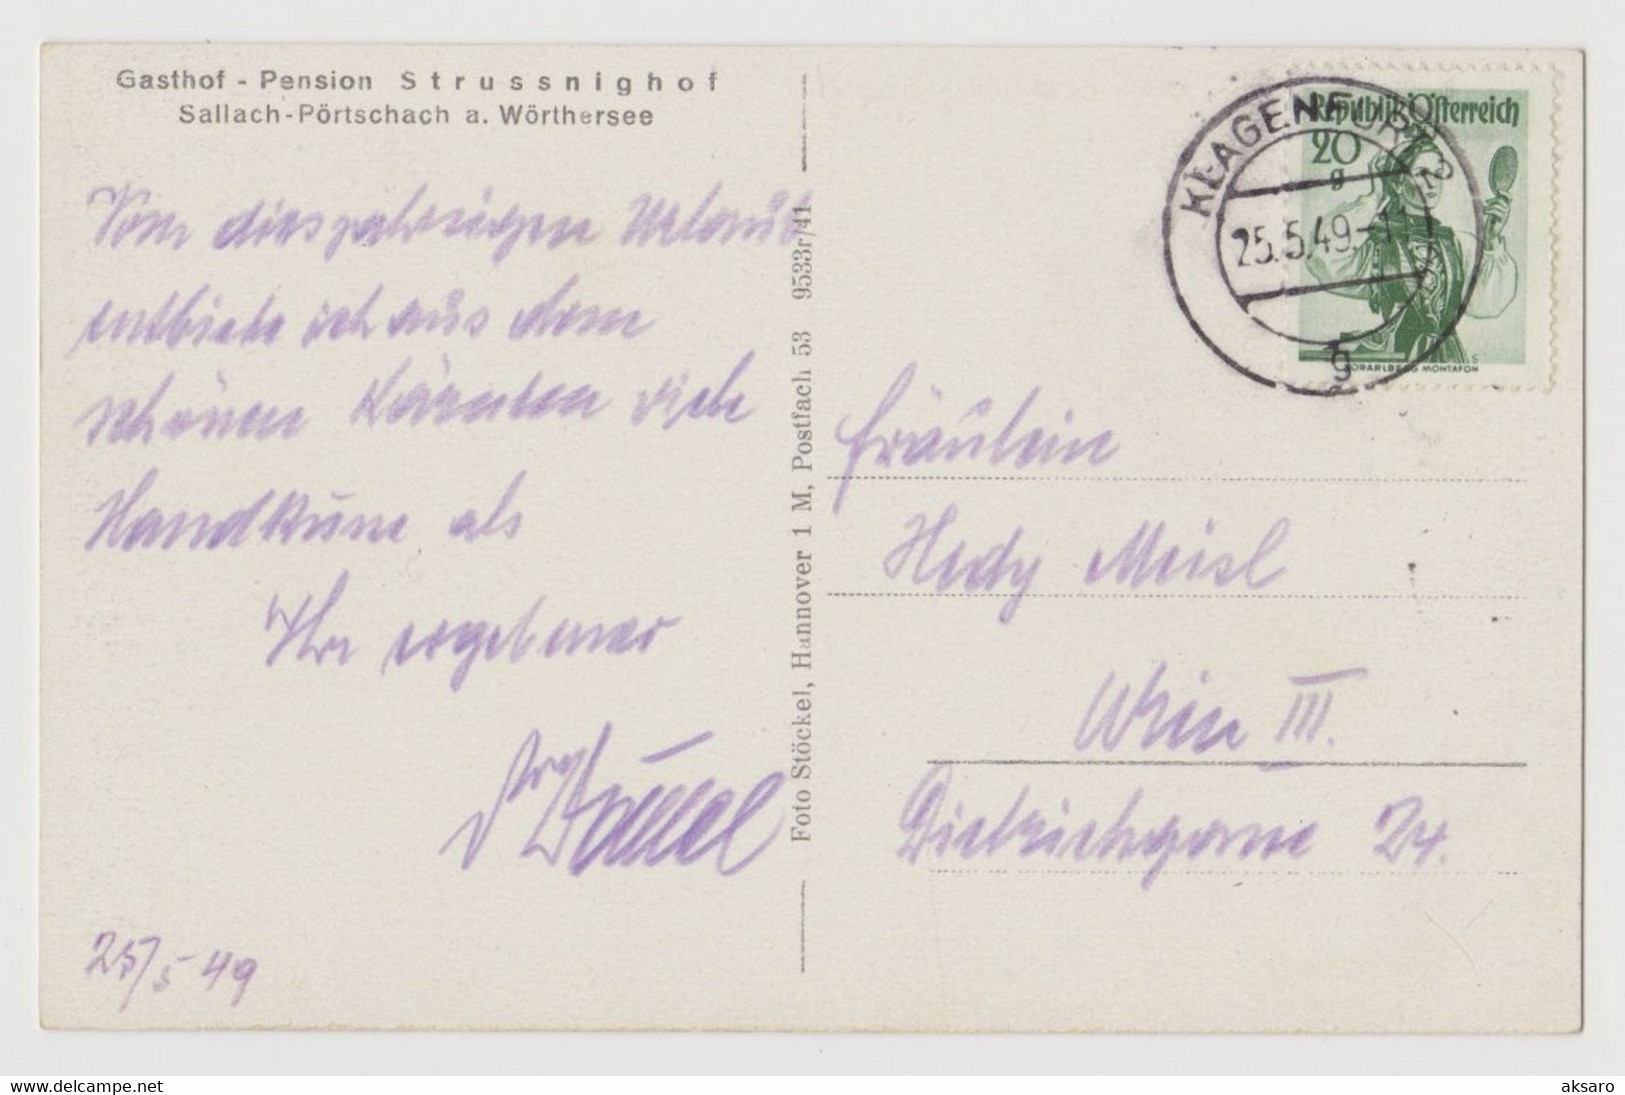 Gasthof - Pension Strussnighof
Sallach-Pörtschach a. Wörthersee
Vom diesjährigen Urlaub
entbiete ich aus dem
schönen Kärnten viele
Handküsse als
Ihr ergebener
25/5 49
Foto Stöckel, Hannover 1 M, Postfach 53 9533r/41
KLAGENFURT 2
25.5.49.-11
g
Republik Österreich
20
g
VORARLBERG MONTAFON
Fräulein
Hedy Meisl
Wien III.
Dietrichgasse 24.
www.delcampe.net
aksaro